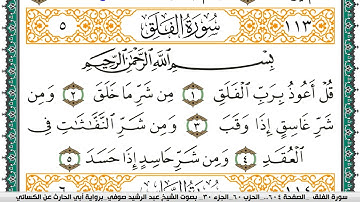 ١١٣ سُورَةُ الْفَلَقِ ٥
بِسْمِ اللَّهِ الرَّحْمَٰنِ الرَّحِيمِ
قُلْ أَعُوذُ بِرَبِّ الْفَلَقِ ١ مِن شَرِّ مَا خَلَقَ ٢ وَمِن
شَرِّ غَاسِقٍ إِذَا وَقَبَ ٣ وَمِن شَرِّ النَّفَّٰثَٰتِ فِى
الْعُقَدِ ٤ وَمِن شَرِّ حَاسِدٍ إِذَا حَسَدَ ٥
سورة الفلق الصفحة ٦٠٤.. الحزب ٦٠ الجزء ٣٠ .بصوت الشيخ عبد الرشيد صوفي برواية أبي الحارث عن الكسائي